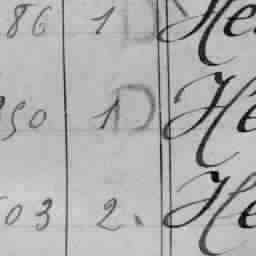 86 1 D He
850 1 D He
03 2. He